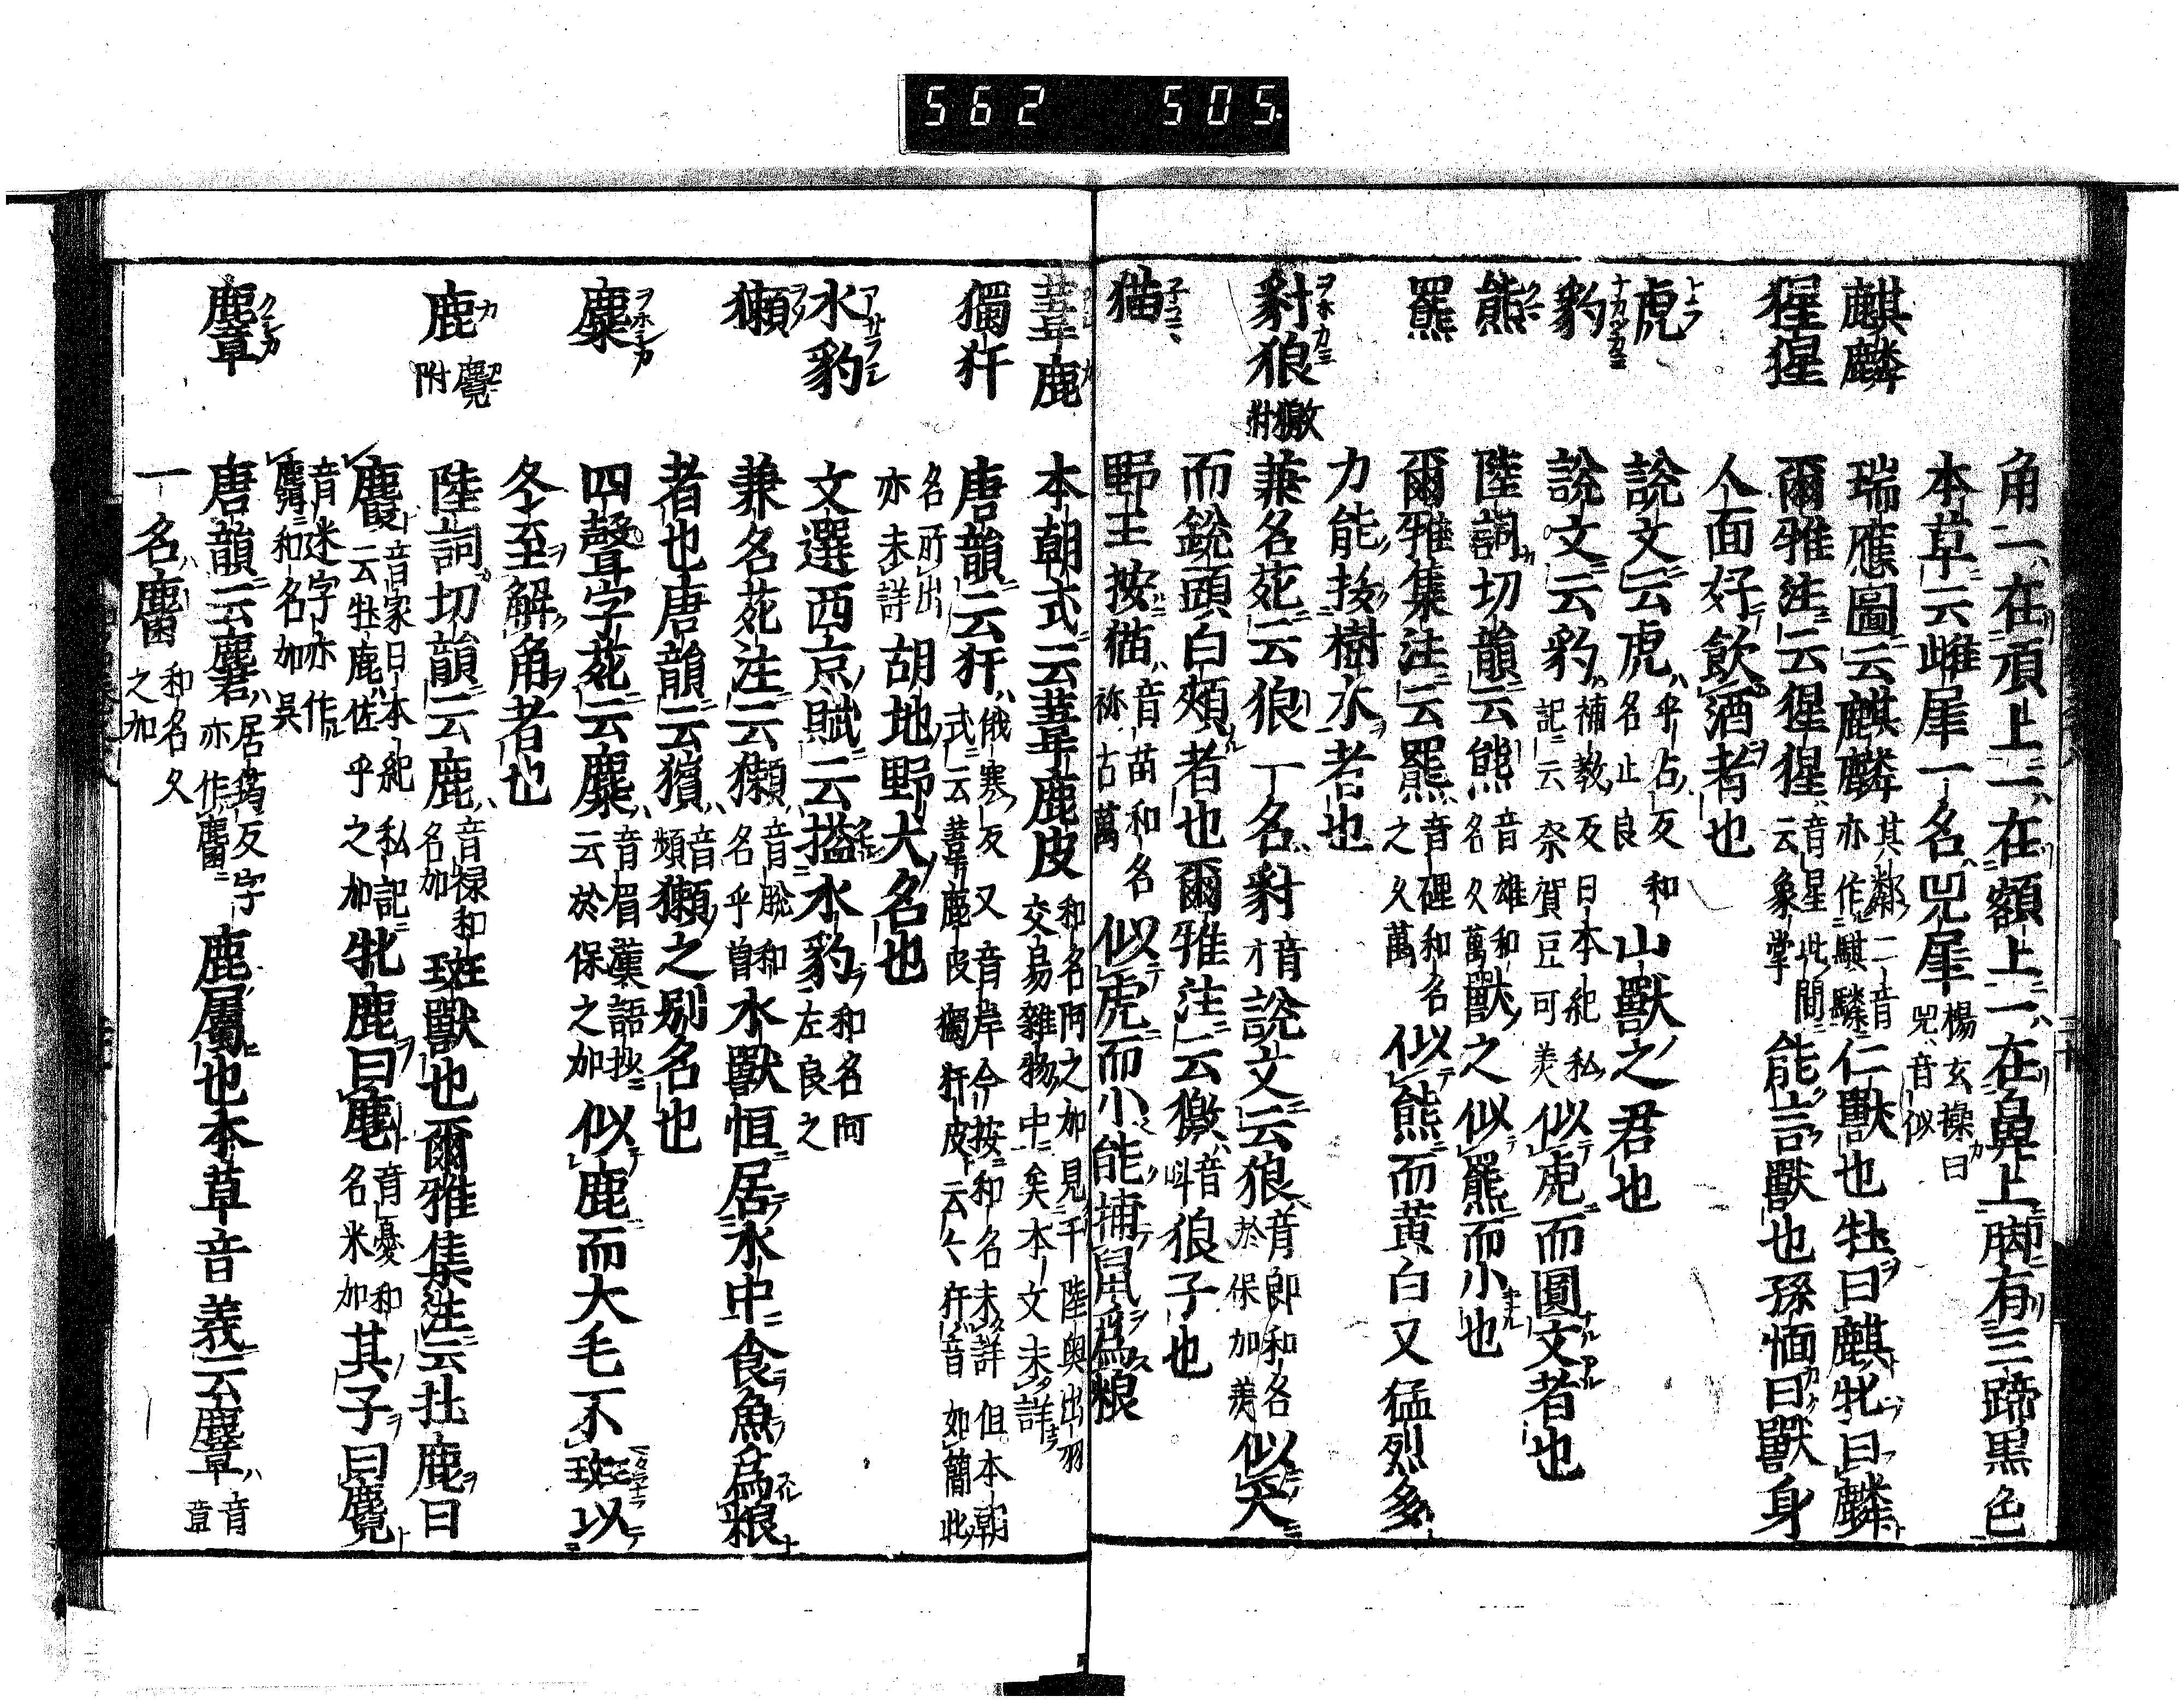 562 505
角一在頂上一在額上一在鼻上脚有三蹄黒色
本草云雌犀一名兕犀 楊玄操曰兕音似
麒麟 瑞應圖云麒麟 其鄰二音亦作騏驎 仁獸也牡曰麒牝曰麟
猩猩 爾雅注云猩猩 音星此間云象掌 能言獸也孫愐曰獸身
人面好飲酒者也
虎 トラ 說文云虎 乎古反和名止良 山獸之君也
豹 ナカツカミ 說文云豹 補教反日本紀私記云奈賀豆可美 似虎而圓文者也
熊 クマ 陸詞切韻云熊 音雄和名久萬 獸之似羆而小也
羆 爾雅集注云羆 音碑和名之久萬 似熊而黄白又猛烈多
力能拔樹木者也
豺狼 ヲホカミ 獥附 兼名苑云狼一名豺 音才 說文云狼 音郎和名於保加美 似犬
而銳頭白頰者也爾雅注云獥 音叫 狼子也
猫 ネコマ 野王按猫 音苗和名祢古萬 似虎而小能捕鼠爲粮
葦鹿 本朝式云葦鹿皮 和名阿之加見于陸奥出羽交易雜物中矣本文未詳
獨犴 唐韻云犴 俄寒反又音岸今按和名未詳但本朝式云葦鹿皮獨犴皮云々犴音如簡此
名所出亦未詳 胡地野犬名也
水豹 アサラシ 文選西京賦云搤水豹 和名阿左良之
獺 ヲソ 兼名苑注云獺 音脫和名乎曽 水獸恒居水中食魚爲粮
者也唐韻云獱 音頻 獺之別名也
麋 ヲホシカ 四聲字苑云麋 音眉漢語抄云於保之加 似鹿而大毛不斑以
冬至解角者也
鹿 カ 麑附 陸詞切韻云鹿 音禄和名加 斑獸也爾雅集注云牡鹿曰
麚 音家日本紀私記云牡鹿佐乎之加 牝鹿曰麀 音憂和名米加 其子曰麑
音迷字亦作麛和名加呉
麞 クシカ 唐韻云麕 居筠反字亦作麏 鹿屬也本草音義云麞 音章
一名麕 和名久之加